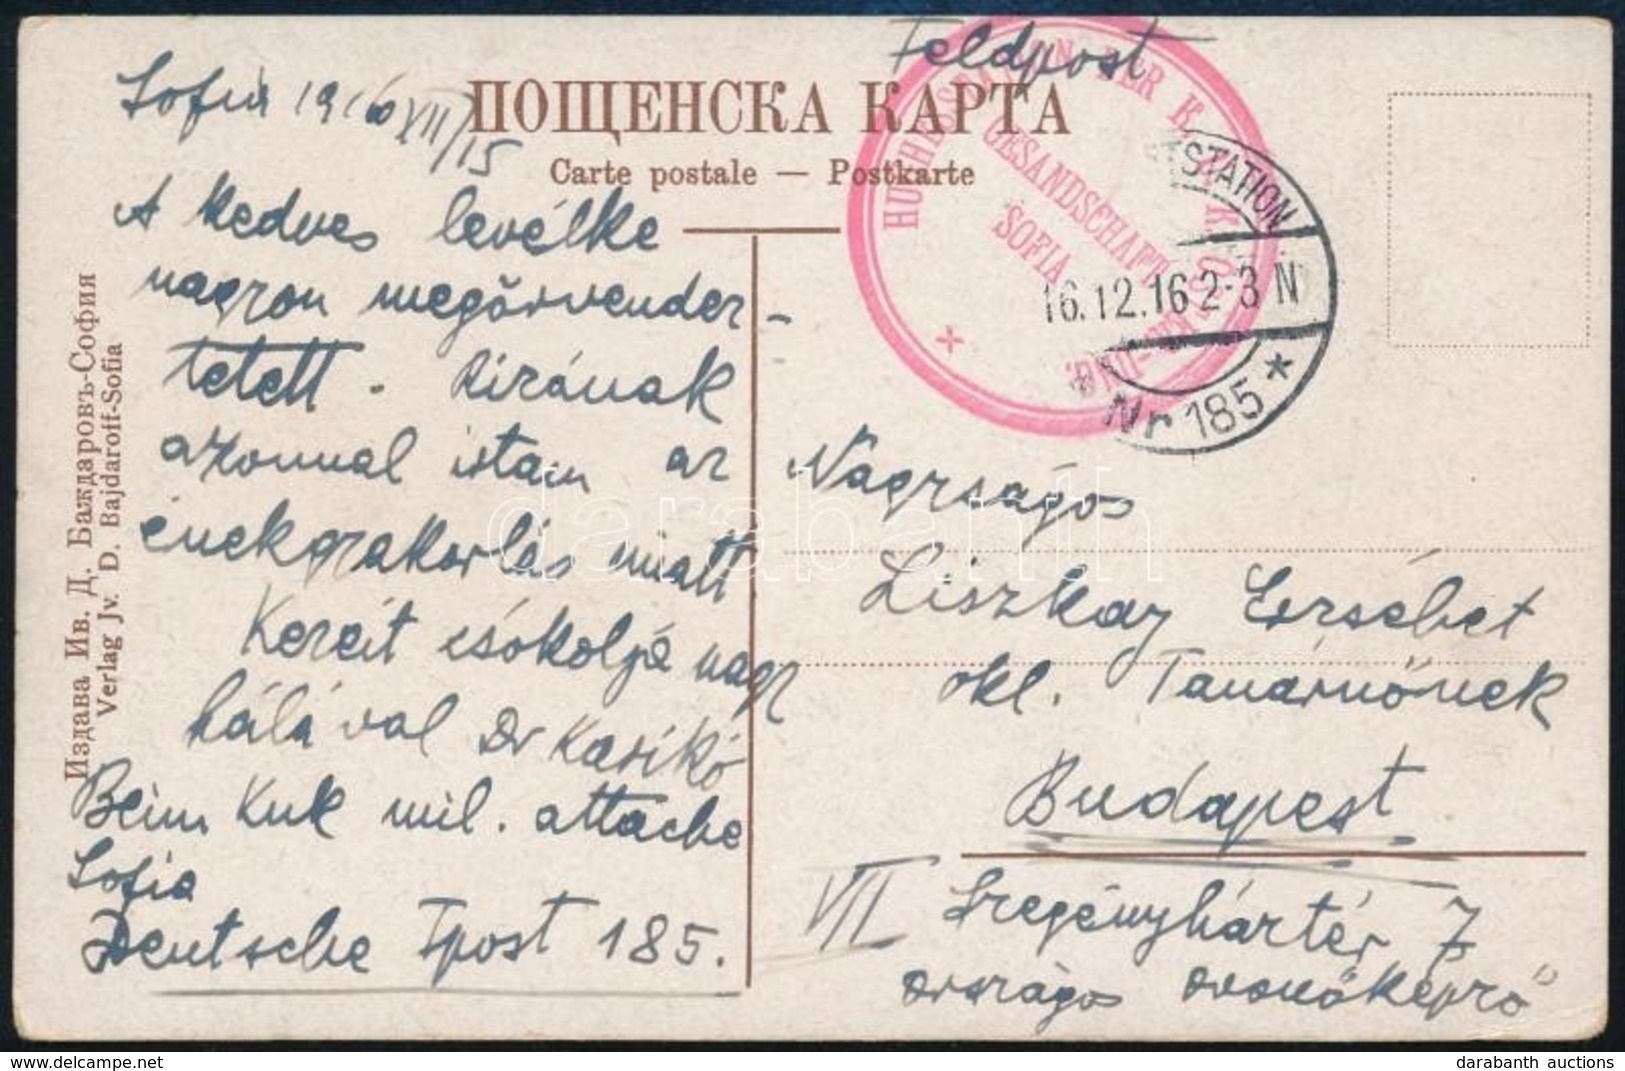 Feldpost
Sofia 1916 XII/15
ПОЩЕНСКА КАРТА
Carte postale — Postkarte
A kedves levélke
nagyon megörvendez-
tetett. Kirának
azonnal írtam az
énekgyakorlás miatt
Kezeit csókolja nagy
hálával Dr Karikó
Beim Kuk mil. attache
Sofia
Deutsche Fpost 185.
Издава Ив. Д. Баждаровъ-София
Verlag Jv. D. Bajdaroff-Sofia
DER K. K.
GESANDSCHAFT
SOFIA
STATION
16.12.16 2-3 N
Nr 185 *
Nagyságos
Liszkay Erzsébet
okl. Tanárnőnek
Budapest
VII Szegényháztér 7
országos óvónőképző
darabanth
darabanth auctions